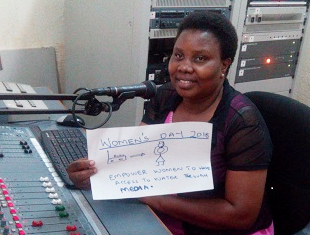 WOMEN'S DAY 2018
EMPOWER WOMEN TO HAVE
ACCESS TO WATER THROUGH
MEDIA.